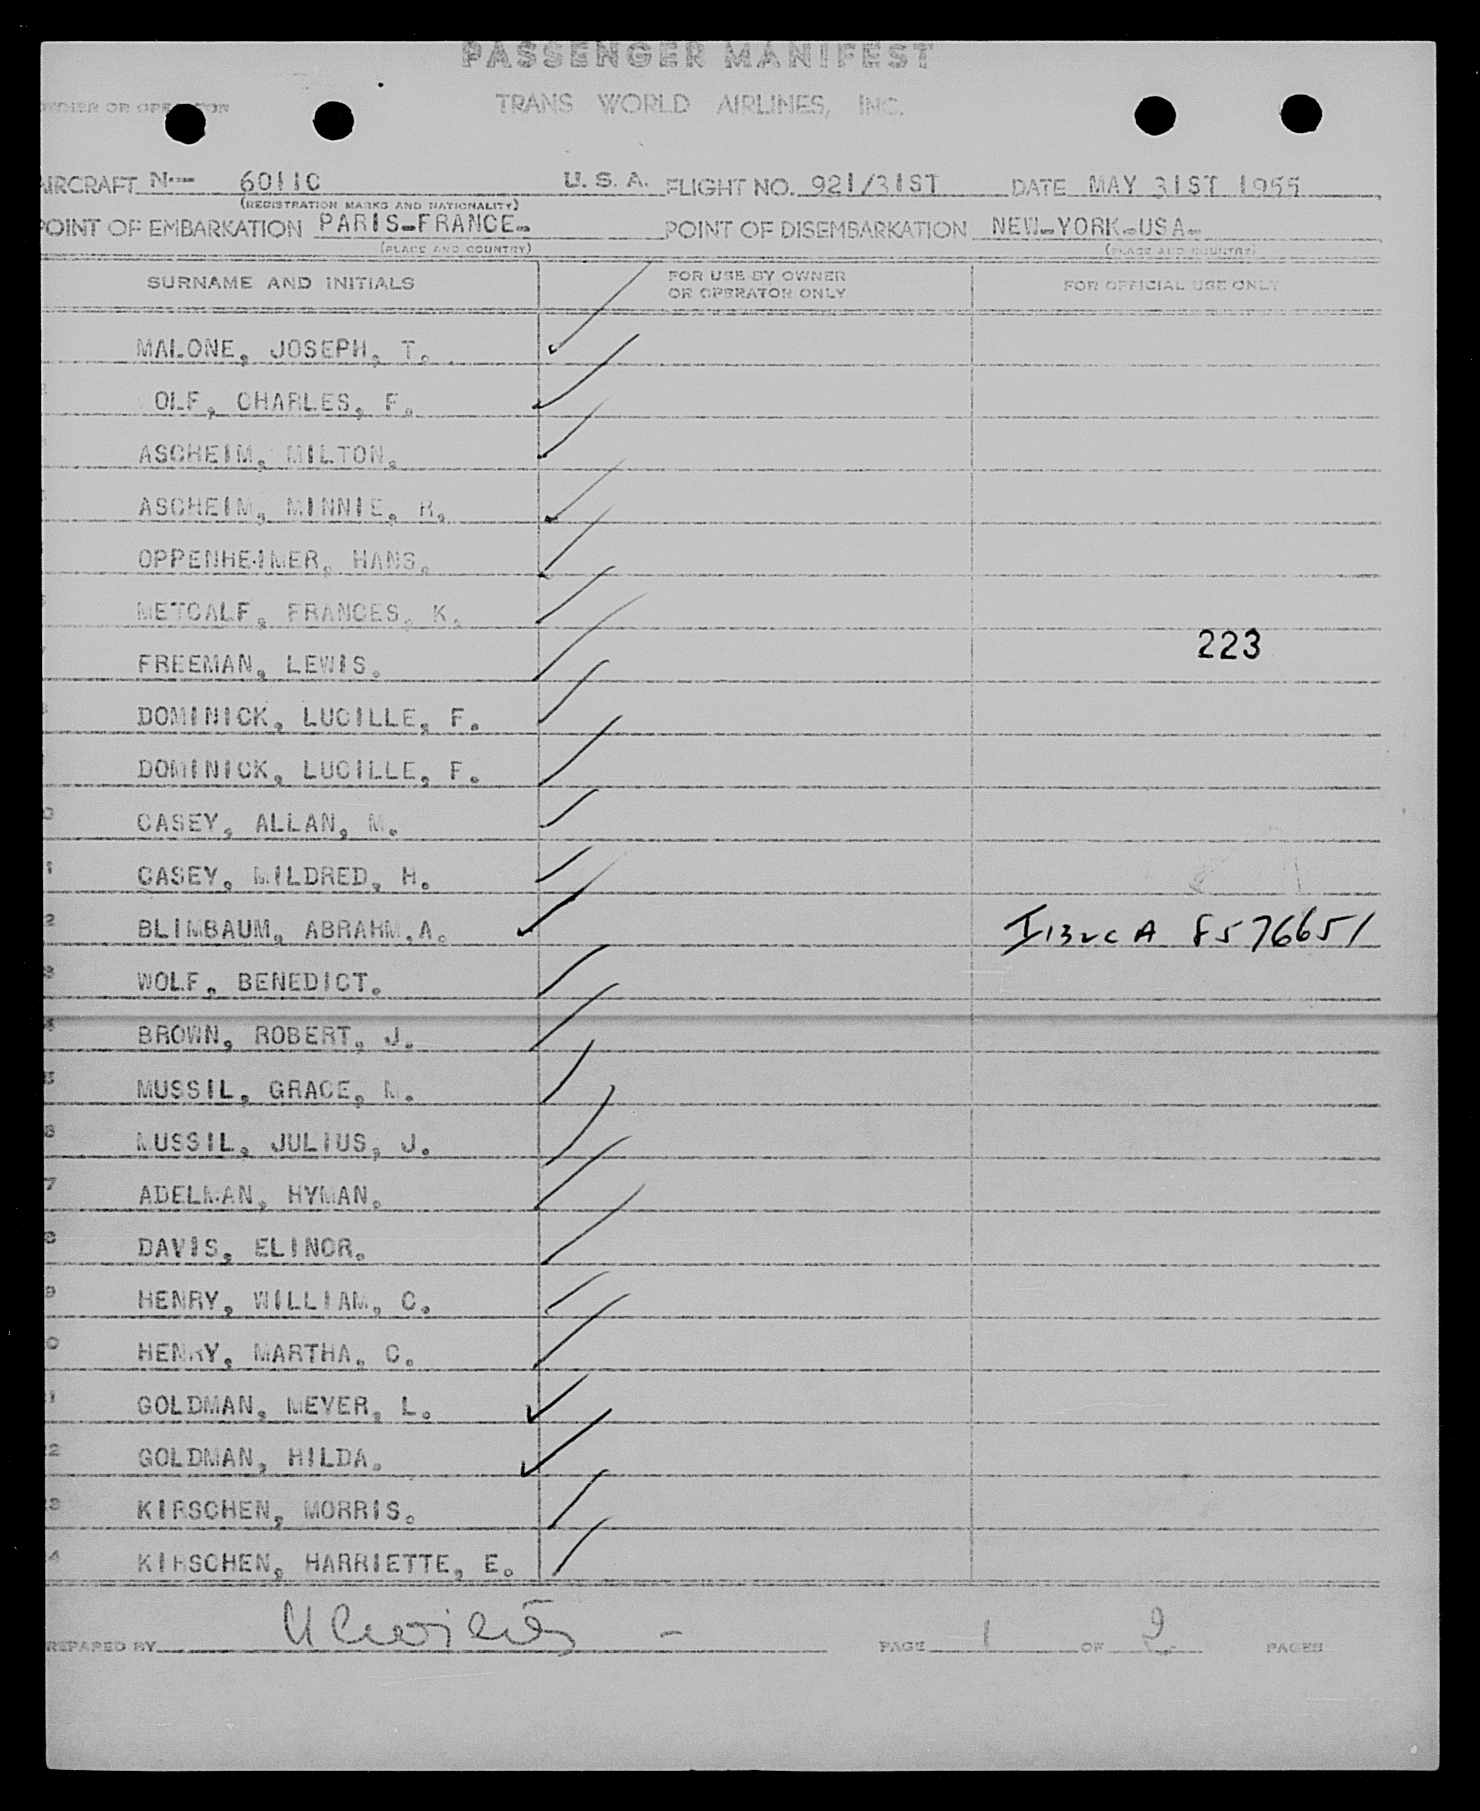 PASSENGER MANIFEST
TRANS WORLD AIRLINES, INC.
AIRCRAFT N-- 6011C U. S. A. FLIGHT NO. 921/31ST DATE MAY 31ST 1955
(REGISTRATION MARKS AND NATIONALITY)
POINT OF EMBARKATION PARIS-FRANCE- POINT OF DISEMBARKATION NEW-YORK-USA-
(PLACE AND COUNTRY) (PLACE AND COUNTRY)
SURNAME AND INITIALS FOR USE BY OWNER OR OPERATOR ONLY FOR OFFICIAL USE ONLY
MALONE, JOSEPH, T.
OLF, CHARLES, F.
ASCHEIM, MILTON.
ASCHEIM, MINNIE, R.
OPPENHEIMER, HANS.
METCALF, FRANCES, K.
223
FREEMAN, LEWIS.
DOMINICK, LUCILLE, F.
DOMINICK, LUCILLE, F.
0 CASEY, ALLAN, M.
1 CASEY, MILDRED, H.
2 BLIMBAUM, ABRAHM.A. A 8576651
3 WOLF, BENEDICT.
4 BROWN, ROBERT, J.
5 MUSSIL, GRACE, M.
6 MUSSIL, JULIUS, J.
7 ADELMAN, HYMAN.
8 DAVIS, ELINOR.
9 HENRY, WILLIAM, C.
0 HENRY, MARTHA, C.
1 GOLDMAN, MEYER, L.
22 GOLDMAN, HILDA.
23 KIRSCHEN, MORRIS.
4 KIRSCHEN, HARRIETTE, E.
REPARED BY PAGE 1 OF 2 PAGES